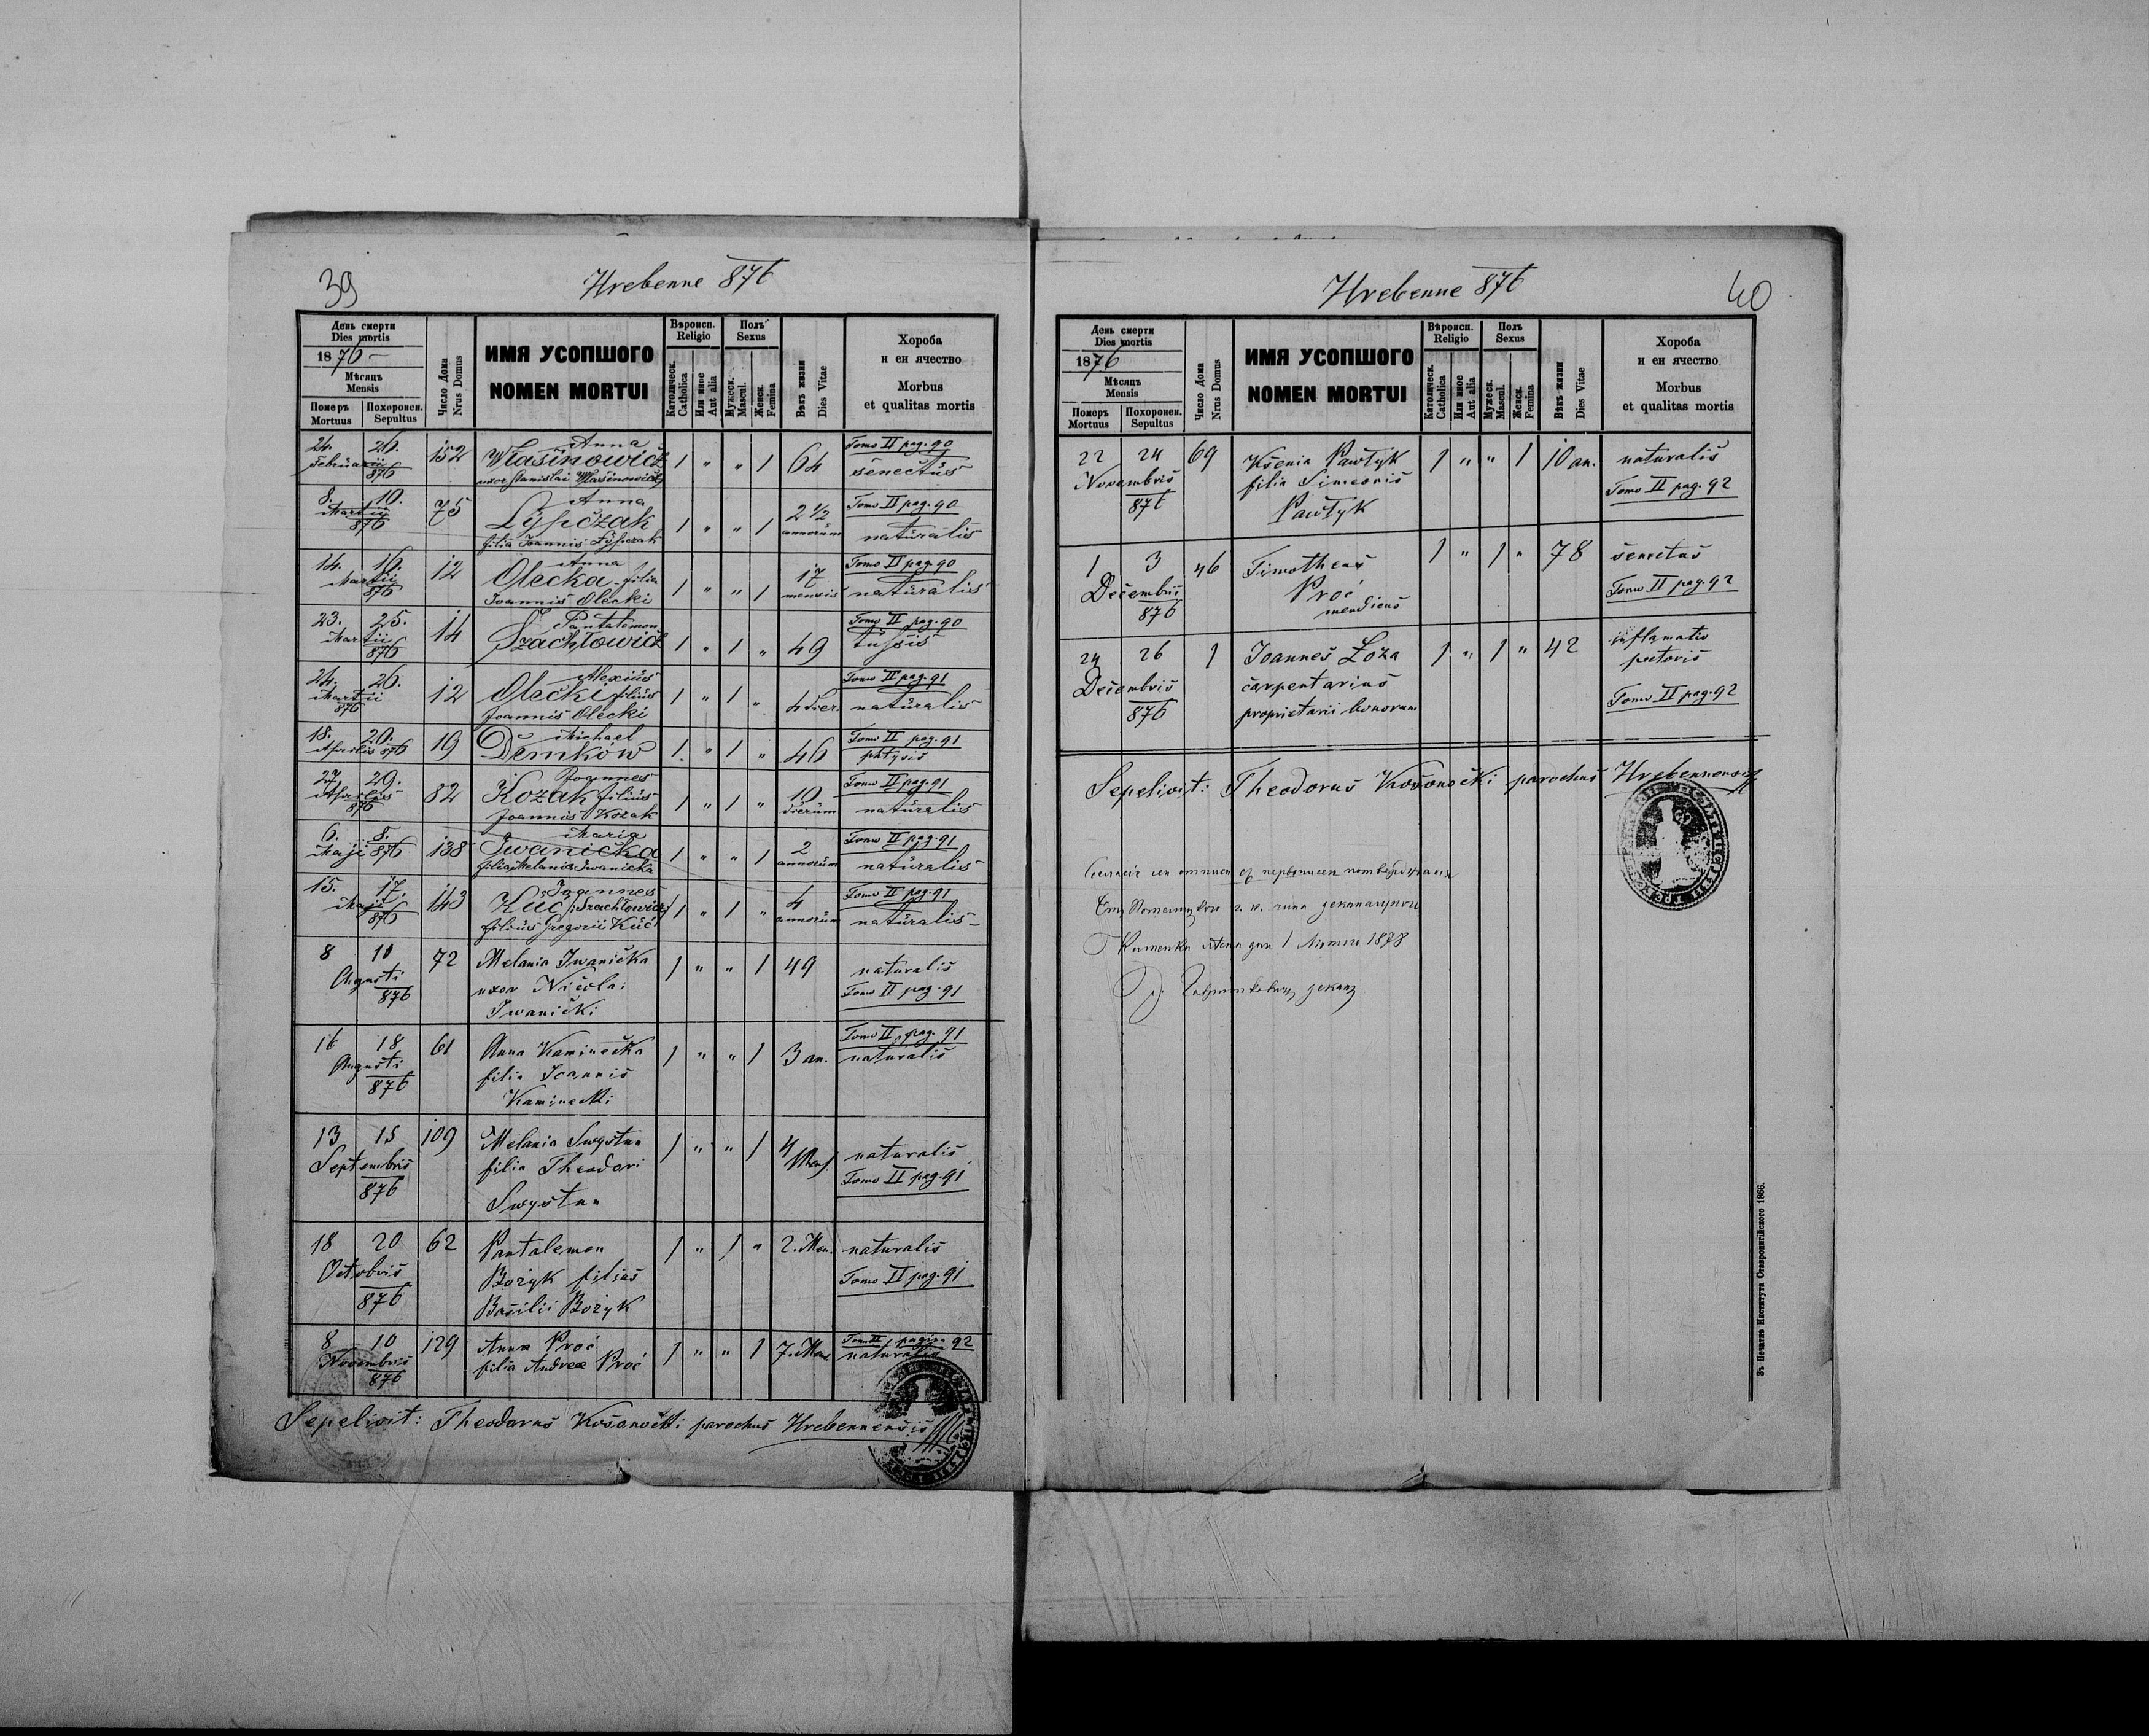 39
Hrebenne 876
День смерти
Dies mortis
1876
Мѣсяць
Mensis
Померъ
Mortuus
Похоронен.
Sepultus
Число Дома
Nrus Domus
ИМЯ УСОПШОГО
NOMEN MORTUI
Вѣроисп.
Religio
Католическ.
Catholica
Или иное
Aut alia
Полъ
Sexus
Мужеск.
Mascul.
Женск.
Femina
Вѣкъ жизни
Dies Vitae
Хороба
и еи ячество
Morbus
et qualitas mortis
24. 26. 152 Anna Tomo II pag. 90
Februarii Własinowicz 1 " " 1 64 senectus
876 uxor Stanislai Własinowicz
8. 10. 75 Anna 2 1/2 Tomo II pag. 90
Martii Lypczak 1 " " 1 annorum naturalis
876 filia Joannis Lypczak
14. 16. 12 Anna 17 Tomo II pag. 90
Martii Olecka filia 1 " " 1 mensis naturalis
876 Joannis Olecki
23. 25. 14 Pantalemon Tomo II pag. 90
Martii Szachłowicz 1 " 1 " 49 tussis
876
24. 26. 12 Alexius Tomo II pag. 91
Martii Olecki filius 1 " 1 " 4 dier. naturalis
876 Joannis Olecki
18. 20. 19 Michael Tomo II pag. 91
Aprilis 876 Demków 1 " 1 " 46 phtysis
27. 29. 82 Joannes 10 Tomo II pag. 91
Aprilis Kozak filius 1 " 1 " dierum naturalis
876 Joannis Kozak
6. 8. 138 Maria 2 Tomo II pag. 91
Maji 876 Iwanicka 1 " " 1 annorum naturalis
filia Melania Iwanicka
15. 17. 143 Joannes 4 Tomo II pag. 91
Maji Kuć /:Szachłowicz:/ 1 " 1 " annorum naturalis
876 filius Gregorii Kuć
8 10 72 Melania Iwanicka 1 " " 1 49 naturalis
Augusti uxor Nicolai Tomo II pag. 91
876 Iwanicki
16 18 61 Anna Kaminecka 1 " " 1 3 an. Tomo II pag. 91
Augusti filia Joannis naturalis
876 Kaminecki
13 15 109 Melania Swystun 1 " " 1 4 Mens. naturalis
Septembris filia Theodori Tomo II pag. 91
876 Swystun
18 20 62 Pantalemon 1 " 1 " 2. Men. naturalis
Octobris Bożyk filius Tomo II pag. 91
876 Basilii Bożyk
8 10 129 Anna Proć 1 " " 1 7. Mens Tom II pagina 92
Novembris filia Andreæ Proć naturalis
876
Sepelivit: Theodorus Kosonocki parochus Hrebennensis
40
Hrebenne 876
День смерти
Dies mortis
1876
Мѣсяць
Mensis
Померъ
Mortuus
Похоронен.
Sepultus
Число Дома
Nrus Domus
ИМЯ УСОПШОГО
NOMEN MORTUI
Вѣроисп.
Religio
Католическ.
Catholica
Или иное
Aut alia
Полъ
Sexus
Мужеск.
Mascul.
Женск.
Femina
Вѣкъ жизни
Dies Vitae
Хороба
и еи ячество
Morbus
et qualitas mortis
22 24 69 Ksenia Pawłyk 1 " " 1 10 an. naturalis
Novembris filia Simeonis Tomo II pag. 92
876 Pawłyk
1 3 46 Timotheus 1 " 1 " 78 senectus
Decembris Proć Tomo II pag. 92
876 mendicus
24 26 1 Joannes Łoza 1 " 1 " 42 inflamatio
Decembris carpentarius pectoris
876 proprietarii bonorum Tomo II pag. 92
Sepelivit: Theodorus Kosonocki parochus Hrebennensis
1 1878
Зъ Печатнѣ Института Ставропигійского 1866.